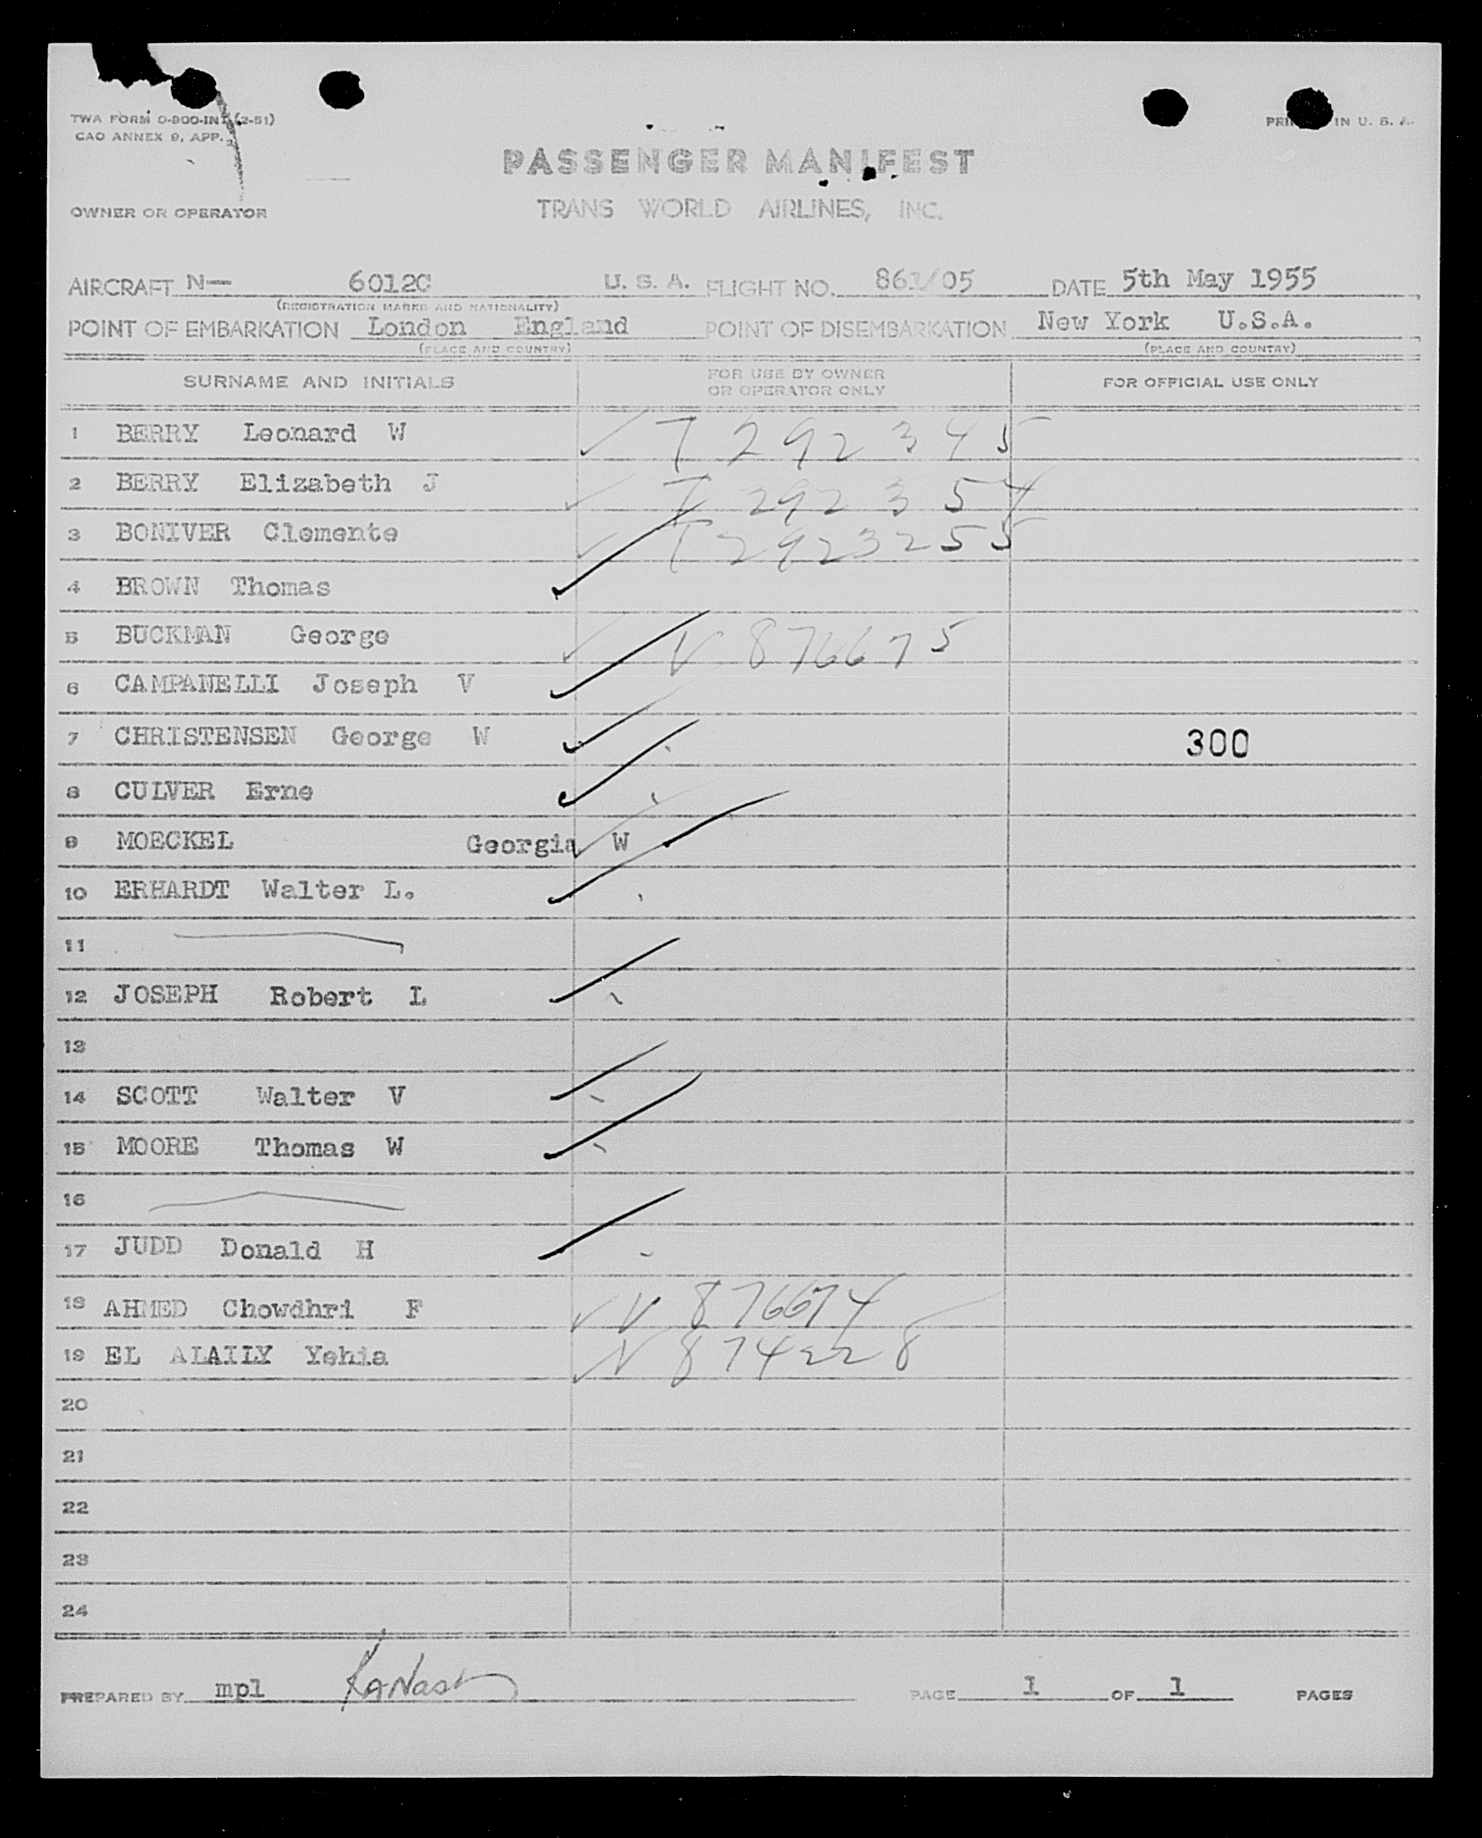 TWA FORM O-800-INT (2-51)
CAO ANNEX 9, APP. 2
IN U. S. A.
PASSENGER MANIFEST
OWNER OR OPERATOR
TRANS WORLD AIRLINES, INC.
AIRCRAFT N— 6012C U. S. A. FLIGHT NO. 861/05 DATE 5th May 1955
(REGISTRATION MARKS AND NATIONALITY)
POINT OF EMBARKATION London England POINT OF DISEMBARKATION New York U.S.A.
(PLACE AND COUNTRY) (PLACE AND COUNTRY)
SURNAME AND INITIALS FOR USE BY OWNER OR OPERATOR ONLY FOR OFFICIAL USE ONLY
1 BERRY Leonard W T 292 345
2 BERRY Elizabeth J T 292 3 54
3 BONIVER Clemente T 2923255
4 BROWN Thomas
5 BUCKMAN George V 876675
6 CAMPANELLI Joseph V
7 CHRISTENSEN George W 300
8 CULVER Erne
9 MOECKEL Georgia W
10 ERHARDT Walter L.
11
12 JOSEPH Robert L
13
14 SCOTT Walter V
15 MOORE Thomas W
16
17 JUDD Donald H
18 AHMED Chowdhri F V 876674
19 EL ALAILY Yehia V 874228
20
21
22
23
24
PREPARED BY mpl PAGE 1 OF 1 PAGES